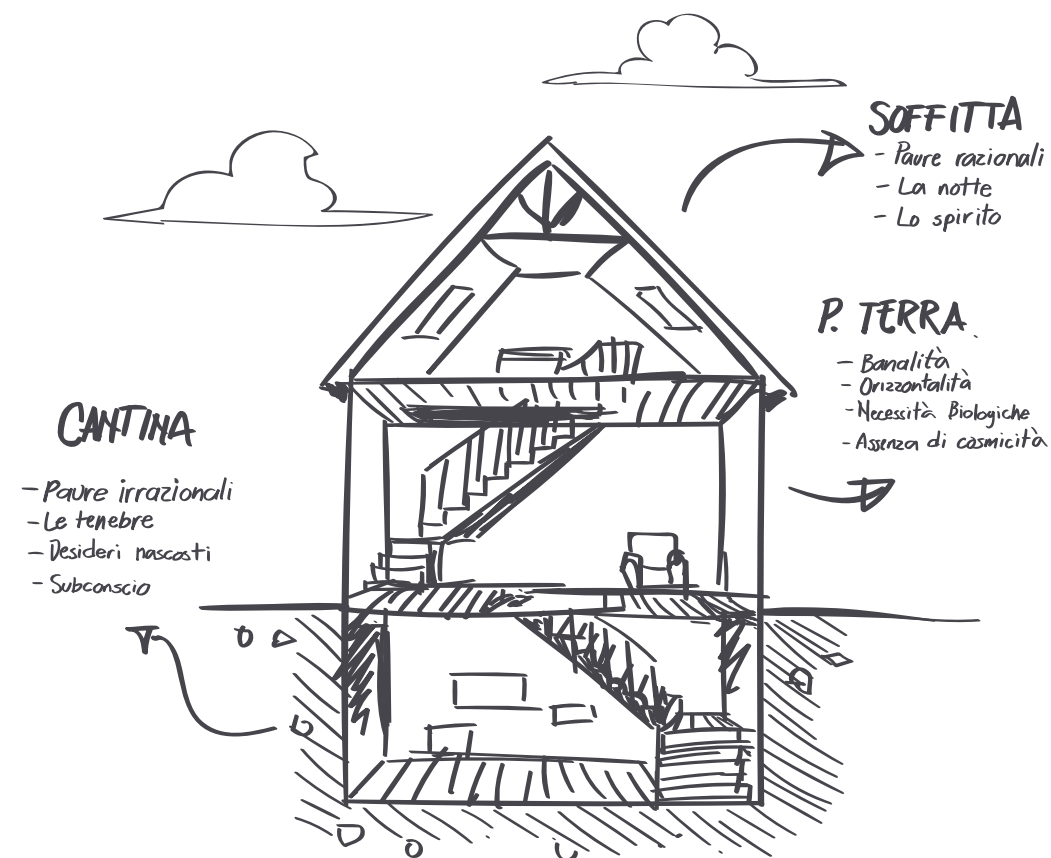 SOFFITTA
- Paure razionali
- La notte
- Lo spirito
P. TERRA
- Banalità
- Orizzontalità
- Necessità Biologiche
- Assenza di cosmicità
CANTINA
- Paure irrazionali
- Le tenebre
- Desideri nascosti
- Subconscio